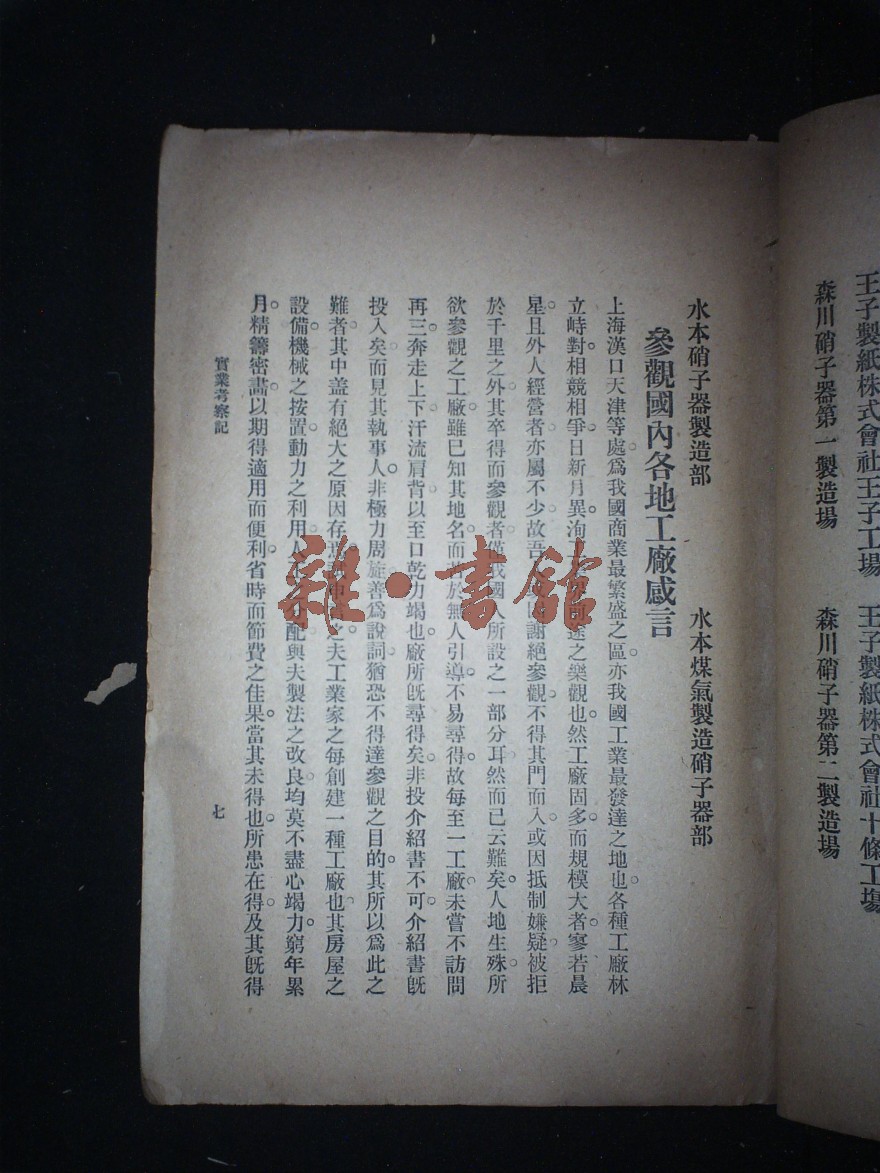 王子製紙株式會社王子工場　王子製紙株式會社十條工場
森川硝子器第一製造場　森川硝子器第二製造場
水本硝子器製造部　水本煤氣製造硝子器部
參觀國內各地工廠感言
上海漢口天津等處爲我國商業最繁盛之區亦我國工業最發達之地也各種工廠林
立峙對相競相爭日新月異洵工之樂觀也然工廠固多而規模大者寥若晨
星且外人經營者亦屬不少故吾謝絕參觀不得其門而入或因抵制嫌疑被拒
於千里之外其卒得而參觀者僅我國所設之一部分耳然而已云難矣人地生殊所
欲參觀之工廠雖已知其地名而苦於無人引導不易尋得故每至一工廠未嘗不訪問
再三奔走上下汗流肩背以至口乾力竭也廠所旣尋得矣非投介紹書不可介紹書旣
投入矣而見其執事人非極力周旋善爲說詞猶恐不得達參觀之目的其所以爲此之
難者其中盖有絕大之原因存焉之夫工業家之每創建一種工廠也其房屋之
設備機械之按置動力之利用人配與夫製法之改良均莫不盡心竭力窮年累
月精籌密畵以期得適用而便利省時而節費之佳果當其未得也所患在得及其旣得
實業考察記
七
雜·書館